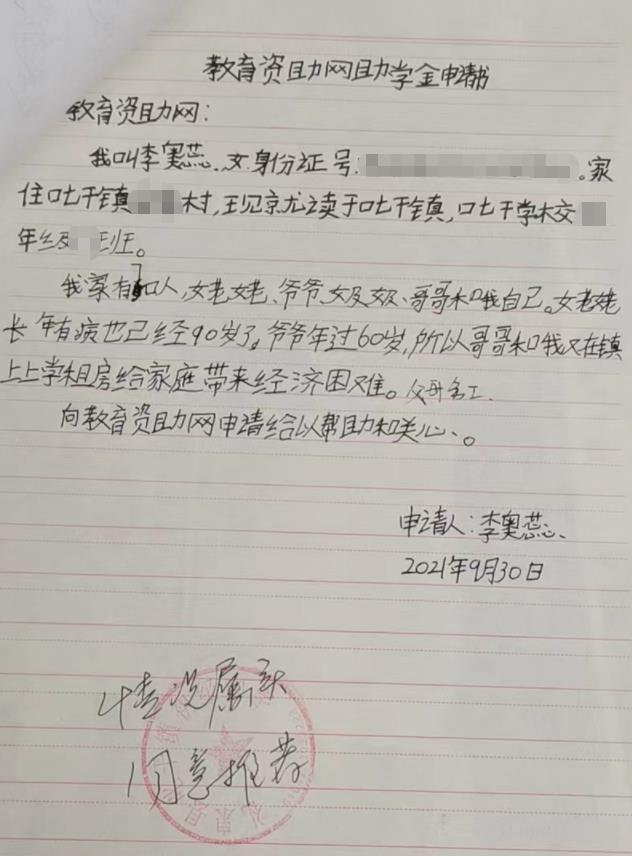 教育资助网助学金申请书
教育资助网:
我叫李奥蕊、女身份证号.。家
住叱干镇村,现就读于叱干镇,叱干学校
年级班。
我家有口人,姥姥、爷爷奶奶、哥哥和我自己。姥姥
长年有病也已经90岁了,爷爷年过60岁,所以哥哥和我又在镇
上上学租房给家庭带来经济困难。父母务工.
向教育资助网申请给以帮助和关心、。
申请人:李奥蕊、
2021年9月30日
情况属实
同意推荐
礼泉县